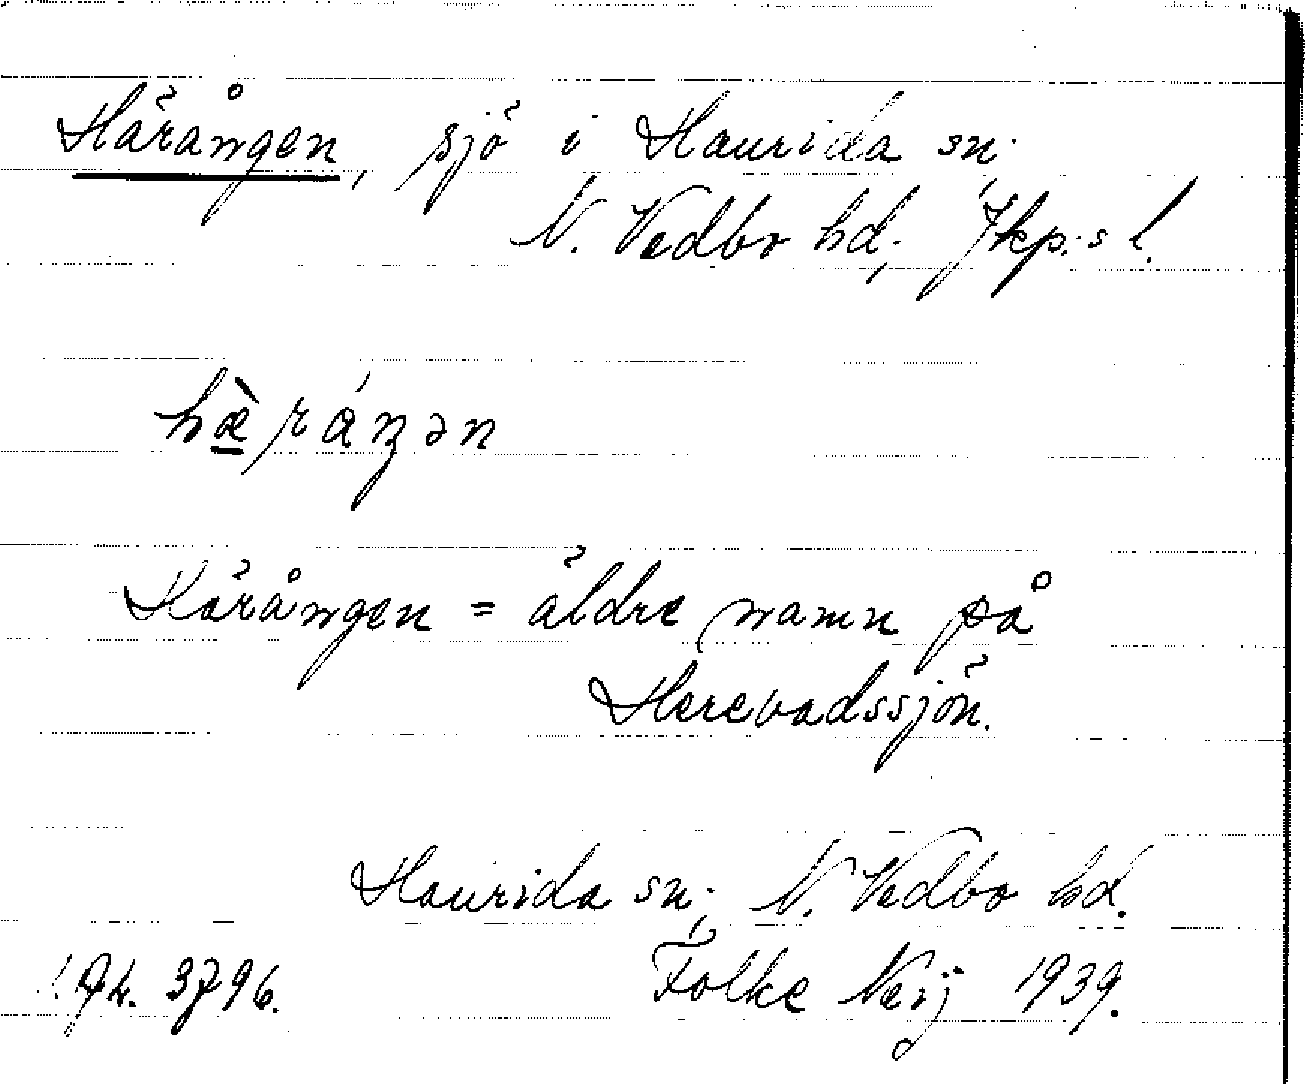 Härången, sjö i Haurida sn.
N. Vedbo hd, Jkp:s l.
hæ̀ráŋən
Härången = äldre namn på
Herevadssjön.
Haurida sn; N. Vedbo hd.
Folke Neij 1939.
3796.